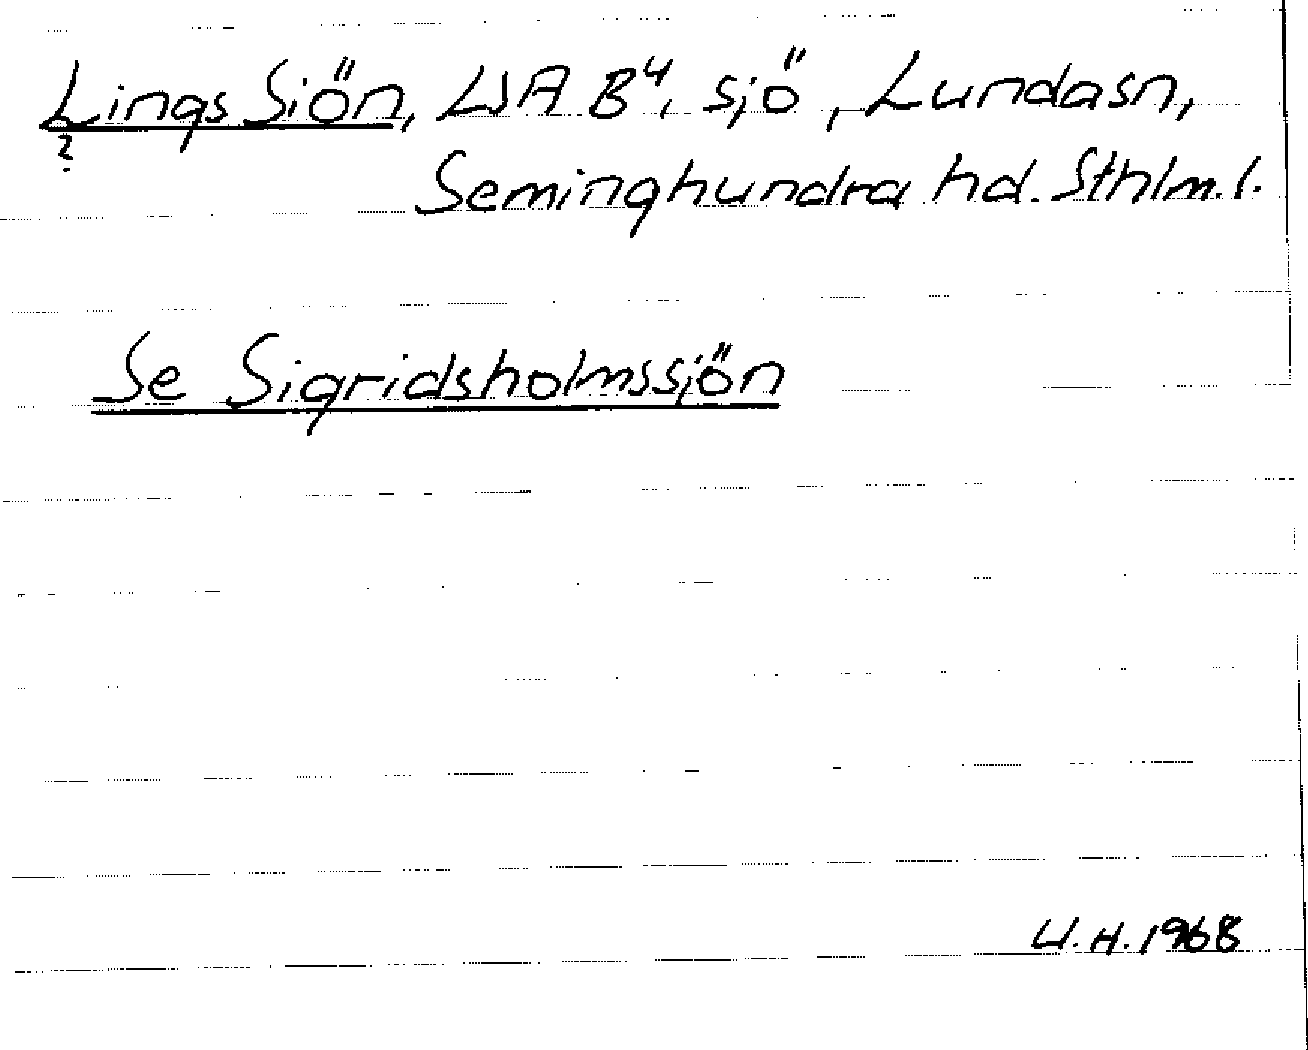 Lings Siön, LSA B4, sjö, Lunda sn,
?
Seminghundra hd. Sthlm. l.
Se Sigridsholmssjön
U.H. 1968